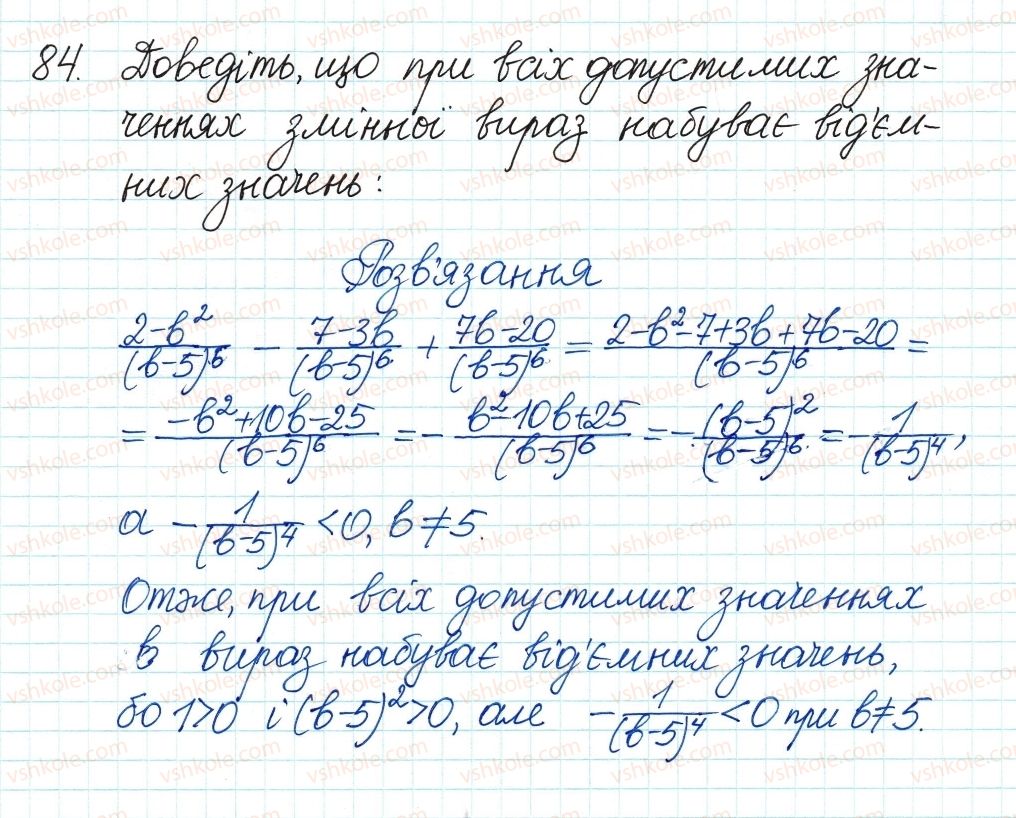 84. Доведіть, що при всіх допустимих зна-
ченнях змінної вираз набуває від'єм-
них значень:
Розв'язання
(2-b²)/(b-5)⁶ - (7-3b)/(b-5)⁶ + (7b-20)/(b-5)⁶ = (2-b²-7+3b+7b-20)/(b-5)⁶ =
= (-b²+10b-25)/(b-5)⁶ = - (b²-10b+25)/(b-5)⁶ = - (b-5)²/(b-5)⁶ = - 1/(b-5)⁴,
а - 1/(b-5)⁴ < 0, b ≠ 5.
Отже, при всіх допустимих значеннях
b вираз набуває від'ємних значень,
бо 1>0 і (b-5)²>0, але - 1/(b-5)⁴ < 0 при b≠5.